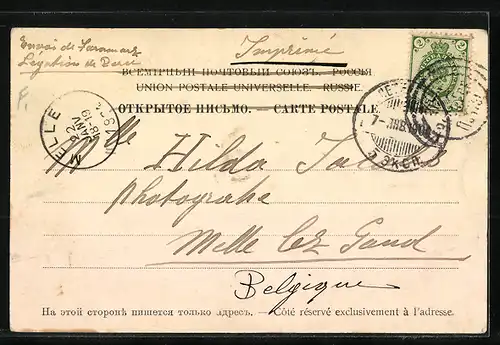 Envoi de
Légation de
Imprimé
ВСЕМІРНЫЙ ПОЧТОВЫЙ СОЮЗЪ. РОССІЯ
UNION POSTALE UNIVERSELLE. RUSSIE.
ОТКРЫТОЕ ПИСЬМО. — CARTE POSTALE
MELLE
22
JANV
18-19
2
7-
ЭКСП.
Mlle Hilda
Photographe
Melle lez Gand
Belgique
На этой сторонѣ пишется только адресъ. — Côté réservé exclusivement à l'adresse.